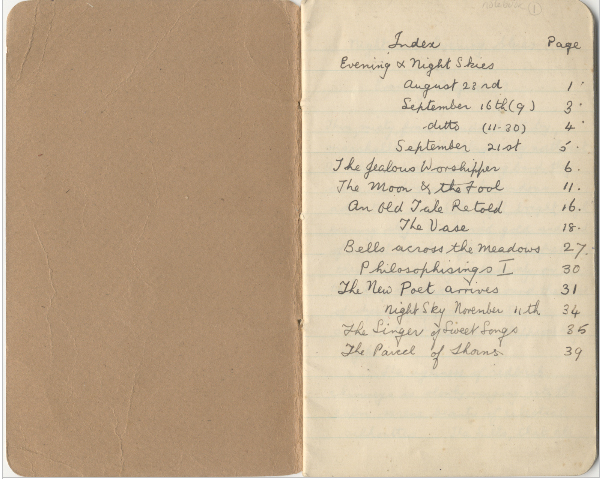 notebook (1)
Index Page
Evening & Night Skies
August 23rd 1.
September 16th (9) 3.
ditto (11-30) 4.
September 21st 5.
The Jealous Worshipper 6.
The Moon & the Fool 11.
An Old Tale Retold 16.
The Vase 18.
Bells across the Meadows 27.
Philosophisings I 30
The New Poet arrives 31
Night Sky November 11th 34
The Singer of Sweet Songs 35
The Parcel of Thorns 39